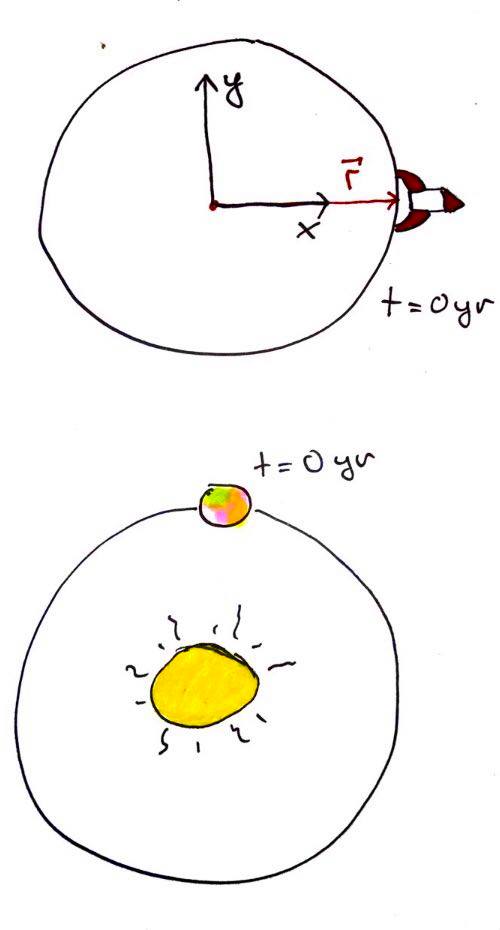 y
r⃗
x
t = 0 yr
t = 0 yr